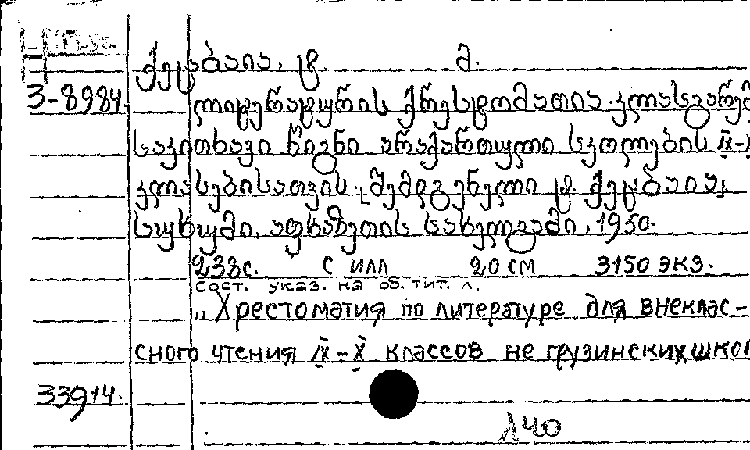 ქეცბაია, ფ. მ.
3-8984.
ლიტერატურის ქრესტომათია. კლასგარეშ
საკითხავი წიგნი არაქართული სკოლების IX-X
კლასებისათვის. [შემდგენელი ფ. ქეცბაია,
სუხუმი, აფხაზეთის სახელგამი, 1950.
238с. с илл 20 см 3150 экз.
сост. указ. на об. тит. л.
„Хрестоматия по литературе для внеклас-
сного чтения IX-X классов не грузинских школ
33914.
Л40